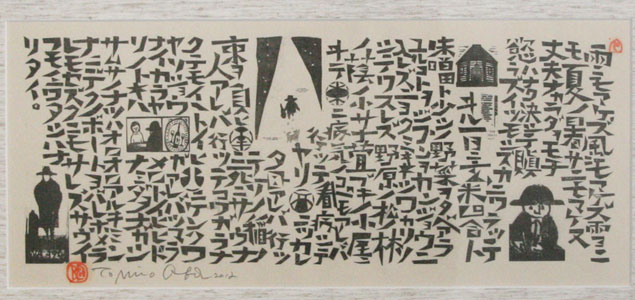 雨ニモマケズ風ニモマケズ雪ニ
モ夏ノ暑サニモマケヌ
丈夫ナカラダヲモチ
慾ハナク決シテ瞋
ラズイツモシズ
カニワラッテ
ヰル一日ニ玄米四合ト
味噌ト少シノ野菜ヲタベアラ
ユルコトヲジブンヲカンジョウニ
入レズニヨクミキキシワカリソ
シテワスレズ野原ノ松ノ林ノ
蔭ノ小サナ萱ブキノ小屋ニ
ヰテ東ニ病気ノコドモアレバ
行ッテ看病シテ
ヤリ西ニツカレ
タ母アレバ行ッ
テソノ稲ノ
束ヲ負ヒ南ニ死ニサウナ
人アレバ行ッテコハガラナ
クテモイイトイヒ北ニケンクヮ
ヤソショウガアレバツマラ
ナイカラヤメロトイヒヒデ
リノトキハナミダヲナガシ
サムサノナツハオロオロアルキミン
ナニデクノボートヨバレホメラ
レモセズクニモサレズサウイ
フモノニワタシハナ
リタイ。
2012